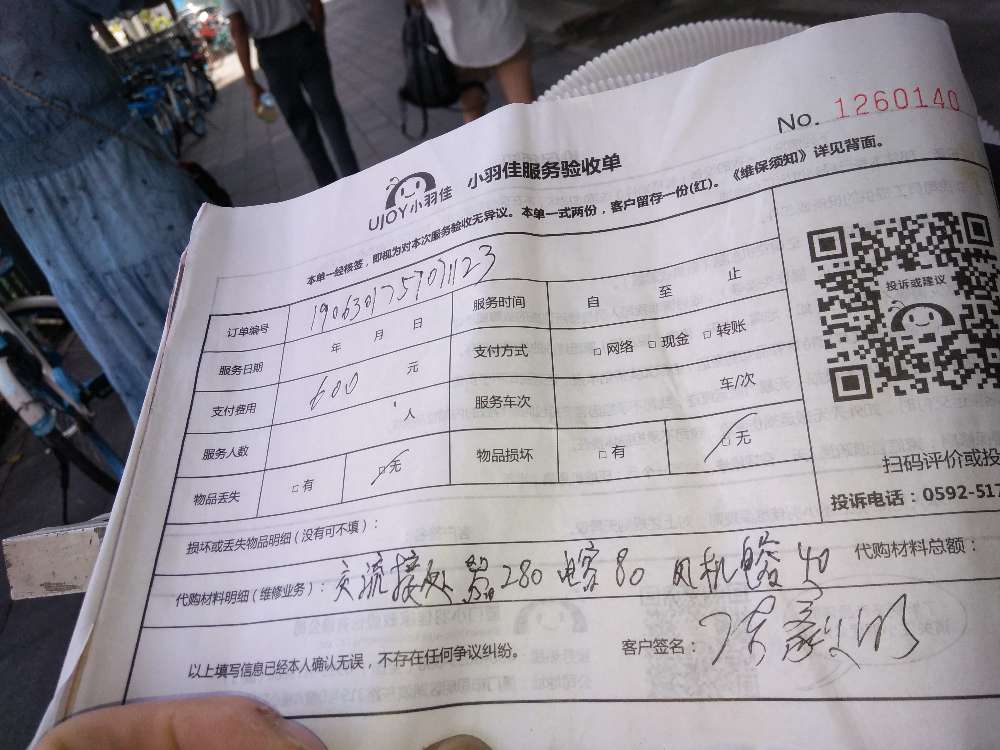 No. 1260140
UJOY小羽佳 小羽佳服务验收单
本单一经核签，即视为对本次服务验收无异议。本单一式两份，客户留存一份(红)。《维保须知》详见背面。
订单编号 1906301757071123 服务时间 自 至 止
服务日期 年 月 日 支付方式 □网络 □现金 □转账
支付费用 600 元 服务车次 车/次
服务人数 人 物品损坏 □有 □无
物品丢失 □有 □无
投诉或建议
扫码评价或投
投诉电话：0592-517
损坏或丢失物品明细（没有可不填）：
代购材料明细（维修业务）：交流接处器280 电容80 风机电容40 代购材料总额：
以上填写信息已经本人确认无误，不存在任何争议纠纷。 客户签名：